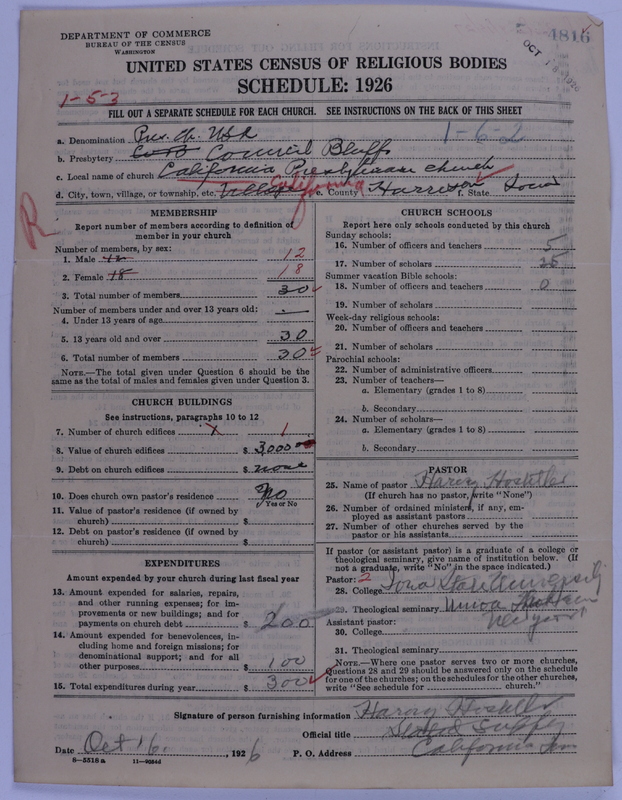 DEPARTMENT OF COMMERCE
BUREAU OF THE CENSUS
WASHINGTON
4816
OCT 18 1926
UNITED STATES CENSUS OF RELIGIOUS BODIES
SCHEDULE: 1926
1-5-3
FILL OUT A SEPARATE SCHEDULE FOR EACH CHURCH. SEE INSTRUCTIONS ON THE BACK OF THIS SHEET
a. Denomination Pres. Ch. USA
1-6-2
b. Presbytery Council Bluffs
c. Local name of church California Presbyterian church
d. City, town, village, or township, etc. Village California e. County Harrison f. State Iowa
R
MEMBERSHIP
Report number of members according to definition of
member in your church
Number of members, by sex:
1. Male 12 12
2. Female 18 18
3. Total number of members 30
Number of members under and over 13 years old:
4. Under 13 years of age —
5. 13 years old and over 30
6. Total number of members 30
NOTE.—The total given under Question 6 should be the
same as the total of males and females given under Question 3.
CHURCH BUILDINGS
See instructions, paragraphs 10 to 12
7. Number of church edifices X 1
8. Value of church edifices $ 3,000 00
9. Debt on church edifices $ none
10. Does church own pastor's residence No
Yes or No
11. Value of pastor's residence (if owned by
church) $
12. Debt on pastor's residence (if owned by
church) $
EXPENDITURES
Amount expended by your church during last fiscal year
13. Amount expended for salaries, repairs,
and other running expenses; for im-
provements or new buildings; and for
payments on church debt $ 200
14. Amount expended for benevolences, in-
cluding home and foreign missions; for
denominational support; and for all
other purposes $ 100
15. Total expenditures during year $ 300
CHURCH SCHOOLS
Report here only schools conducted by this church
Sunday schools:
16. Number of officers and teachers 5
17. Number of scholars 25
Summer vacation Bible schools:
18. Number of officers and teachers 0
19. Number of scholars
Week-day religious schools:
20. Number of officers and teachers
21. Number of scholars
Parochial schools:
22. Number of administrative officers
23. Number of teachers—
a. Elementary (grades 1 to 8)
b. Secondary
24. Number of scholars—
a. Elementary (grades 1 to 8)
b. Secondary
PASTOR
25. Name of pastor Harvy Hostetler
(If church has no pastor, write "None")
26. Number of ordained ministers, if any, em-
ployed as assistant pastors
27. Number of other churches served by the
pastor or his assistants
If pastor (or assistant pastor) is a graduate of a college or
theological seminary, give name of institution below. (If
not a graduate, write "No" in the space indicated.)
Pastor: 2
28. College Iowa State University
29. Theological seminary Union
Assistant pastor: New York
30. College
31. Theological seminary
NOTE.—Where one pastor serves two or more churches,
Questions 28 and 29 should be answered only on the schedule
for one of the churches; on the schedules for the other churches,
write "See schedule for church."
Signature of person furnishing information Harvy Hostetler
Official title Stated Supply
Date Oct 16, 1926 P. O. Address California
8-5518a 11-9054d